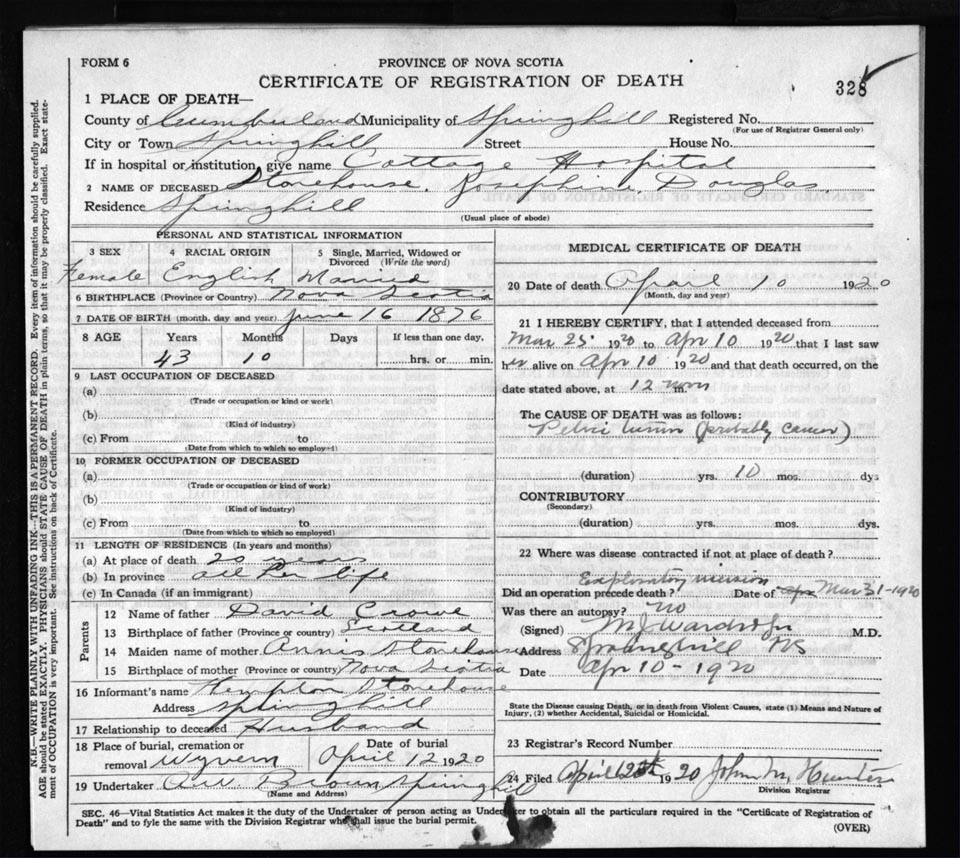 FORM 6
PROVINCE OF NOVA SCOTIA
CERTIFICATE OF REGISTRATION OF DEATH
328
1 PLACE OF DEATH—
County of Cumberland Municipality of Springhill Registered No.
(For use of Registrar General only)
City or Town Springhill Street House No.
If in hospital or institution, give name Cottage Hospital
2 NAME OF DECEASED Stonehouse, Josephina Douglas.
Residence Springhill
(Usual place of abode)
PERSONAL AND STATISTICAL INFORMATION
3 SEX 4 RACIAL ORIGIN 5 Single, Married, Widowed or Divorced (Write the word)
Female English Married
6 BIRTHPLACE (Province or Country) Nova Scotia
7 DATE OF BIRTH (month, day and year) June 16 1876
8 AGE Years Months Days If less than one day,
43 10 hrs. or min.
9 LAST OCCUPATION OF DECEASED
(a)
(Trade or occupation or kind or work)
(b)
(Kind of industry)
(c) From to
(Date from which to which so employed)
10 FORMER OCCUPATION OF DECEASED
(a)
(Trade or occupation or kind of work)
(b)
(Kind of industry)
(c) From to
(Date from which to which so employed)
11 LENGTH OF RESIDENCE (In years and months)
(a) At place of death 20 years
(b) In province all her life
(c) In Canada (if an immigrant)
Parents
12 Name of father David Crowe
13 Birthplace of father (Province or country) Scotland
14 Maiden name of mother Annis Stonehouse
15 Birthplace of mother (Province or country) Nova Scotia
16 Informant's name Stonehouse
Address Springhill
17 Relationship to deceased Husband
18 Place of burial, cremation or removal Wyvern Date of burial April 12 1920
19 Undertaker Brown Springhill
(Name and Address)
MEDICAL CERTIFICATE OF DEATH
20 Date of death April 10 1920
(Month, day and year)
21 I HEREBY CERTIFY, that I attended deceased from
Mar 25 1920 to Apr 10 1920 that I last saw
her alive on Apr 10 1920 and that death occurred, on the
date stated above, at 12 noon m.
The CAUSE OF DEATH was as follows:
Pelvic tumor (probably cancer)
(duration) yrs. 10 mos. dys
CONTRIBUTORY
(Secondary)
(duration) yrs. mos. dys.
22 Where was disease contracted if not at place of death?
Exploratory incision
Did an operation precede death? Date of Mar 31-1920
Was there an autopsy? No
(Signed) M J Wardrope M.D.
Address Springhill NS
Date Apr 10-1920
State the Disease causing Death, or in death from Violent Causes, state (1) Means and Nature of
Injury, (2) whether Accidental, Suicidal or Homicidal.
23 Registrar's Record Number
24 Filed April 12th 1920 John M. Hunter
Division Registrar
SEC. 46—Vital Statistics Act makes it the duty of the Undertaker or person acting as Undertaker to obtain all the particulars required in the "Certificate of Registration of
Death" and to fyle the same with the Division Registrar who shall issue the burial permit.
(OVER)
N.B.—WRITE PLAINLY WITH UNFADING INK—THIS IS A PERMANENT RECORD. Every item of information should be carefully supplied.
AGE should be stated EXACTLY. PHYSICIANS should STATE CAUSE OF DEATH in plain terms, so that it may be properly classified. Exact state-
ment of OCCUPATION is very important. See instructions on back of Certificate.